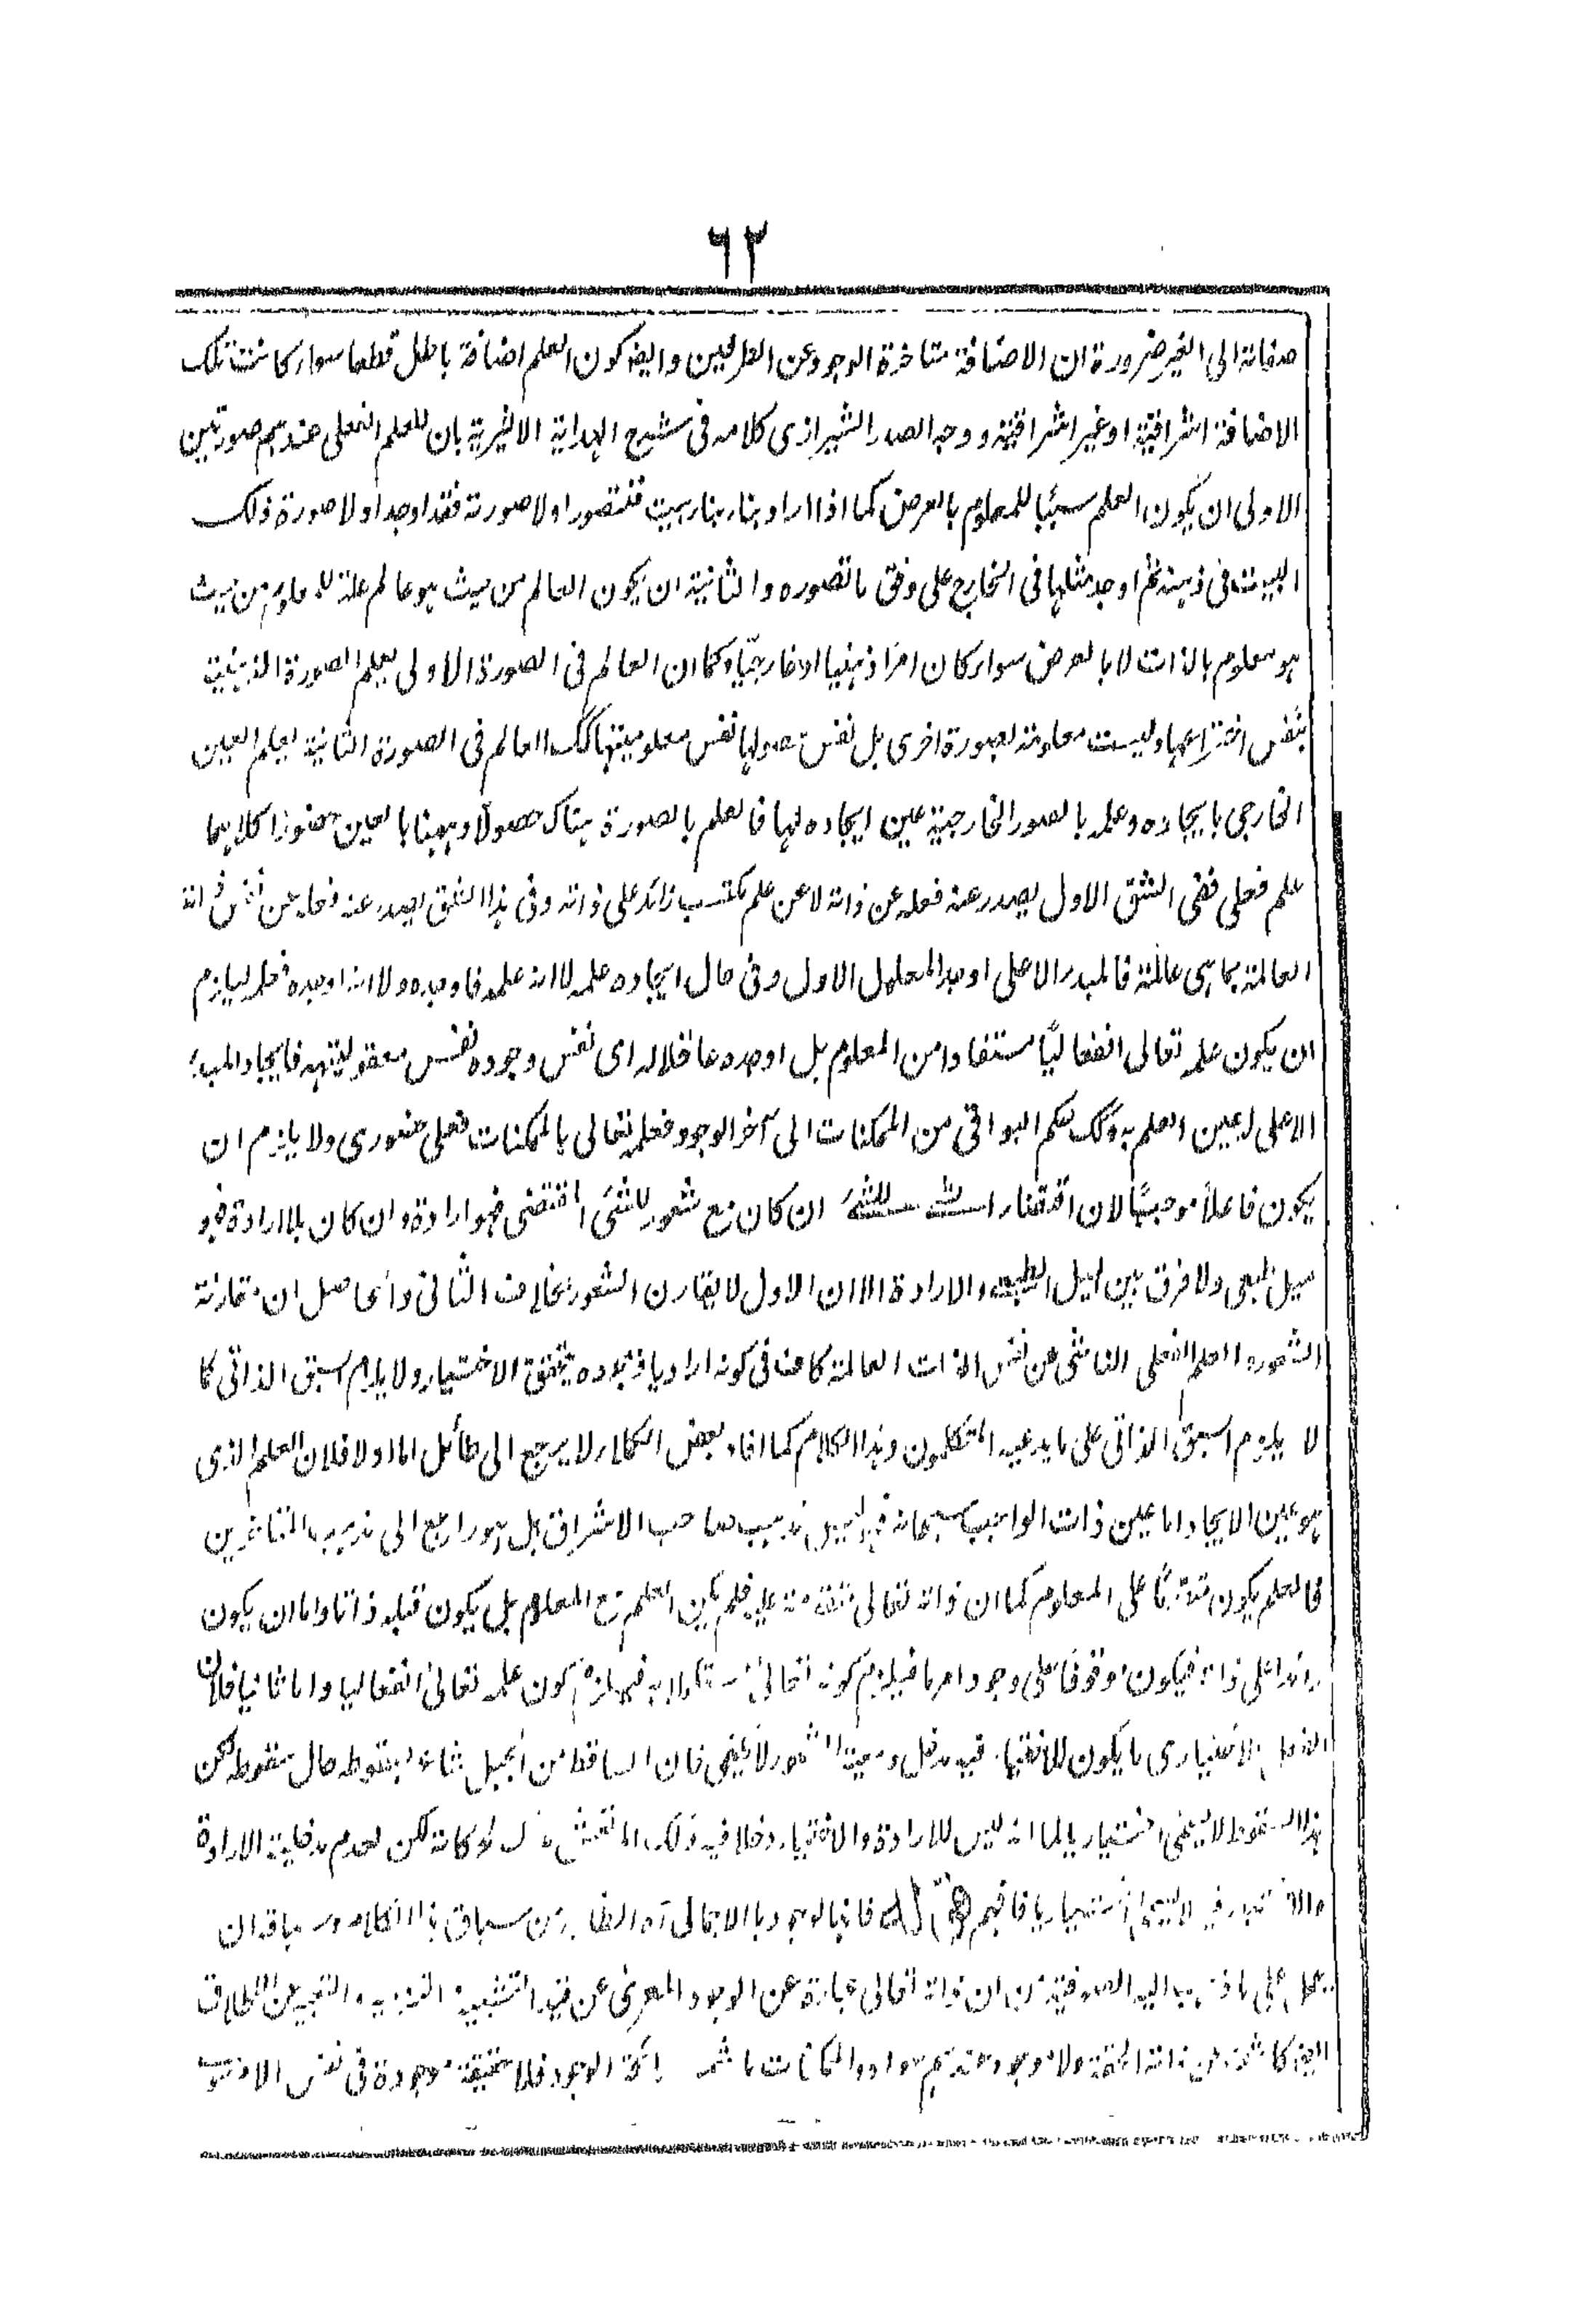 ٦٢
صفاته الى الغير ضرورة ان الاضافة متاخرة الوجود عن الطرفين وايضا كون العلم اضافة باطل قطعا سواء كانت تلك
الاضافة اشراقية او غير اشراقية ووجه الصدر الشيرازى كلامه فى شرح الهداية الاثيرية بان للعلم الفعلى عندهم صورتين
الاولى ان يكون العلم سببًا للمعلوم بالعرض كما اذا اراد بناء بناء بيت فتصور اولا صورته فقد اوجد اولا صورة ذلك
البيت فى ذهنه ثم اوجد مثلها فى الخارج على وفق ما تصوره والثانية ان يكون العالم من حيث هو عالم علة للمعلوم من حيث
هو معلوم بالذات لا بالعرض سواء كان امرًا ذهنيا او خارجيًا وكما ان العالم فى الصورة الاولى يعلم الصورة الذهنية
بنفس اختراعها وليست معلومة بصورة اخرى بل نفس حصولها نفس معلوميتها كك العالم فى الصورة الثانية يعلم العين
الخارجى بايجاده وعلمه بالصور الخارجية عين ايجاده لها فالعلم بالصورة هناك حصولا وههنا بالعين حضورا كلاهما
علم فعلى ففى الشق الاول يصدر عنه فعله عن ذاته لا عن علم مكتسب زائد على ذاته وفى هذا الشق يصدر عنه فعله عن نفس ذاته
العالمة بما هى عالمة فالمبدء الاعلى اوجد المعلول الاول وفى حال ايجاده علمه لا انه علمه فاوجده ولا انه اوجده فعلمه ليلزم
ان يكون علمه تعالى انفعاليًا مستفادا من المعلوم بل اوجده عاقلا له اى نفس وجوده نفس معقوليته له فايجاد المبدء
الاعلى له عين العلم به وكك حكم البواقى من الممكنات الى آخر الوجود فعلمه تعالى بالممكنات فعلى حضورى ولا يلزم ان
يكون فاعلاً موجبًا لان اقتضاء الشئ للشئ ان كان مع شعور للشئ المقتضى فهو ارادة وان كان بلا ارادة فهو
ميل طبعى ولا فرق بين الميل الطبعى والارادة الا ان الاول لا يقارن الشعور بخلاف الثانى والحاصل ان مقارنة
الشعور والعلم الفعلى الناشى عن نفس الذات العالمة كاف فى كونه اراديا فبهذه يتحقق الاختيار ولا يلزم السبق الذاتى كما
لا يلزم السبق الذاتى على ما يدعيه المتكلمون وهذا الكلام كما افاد بعض الحكماء لا يرجع الى طائل اما اولا فلان العلم الذى
هو عين الايجاد اما عين ذات الواجب سبحانه فهذا ليس مذهب صاحب الاشراق بل هو راجع الى مذهب المتاخرين
فالعلم يكون متقدمًا على المعلوم كما ان ذاته تعالى متقدمة عليه فلم يكن العلم مع المعلوم بل يكون قبله ذاتا واما ان يكون
زائدا على ذاته فيكون موقوفا على وجود امر ما فيلزم كونه تعالى مستكملا به فيلزم كون علمه تعالى انفعاليا واما ثانيا فلان
الفعل الاختيارى ما يكون للاختيار فيه مدخل ومعية الشعور لا يكفى فان الساقط من الجبل بسقوطه حال سقوطه لكن
هذا السقوط لا يسمى اختياريا لما انه ليس للارادة والاختيار دخلا فيه لكن لعدم مدخلية الارادة
والاختيار فيه لا يسمى اختياريا فافهم قوله فانها لوجوب بالاجمالى آه الظاهر من سباق هذا الكلام وسياقه ان
يحمل على ما ذهب اليه الصوفية من ان ذاته تعالى عبارة عن الوجود المعرى عن قيد التشبيه والتنزيه
ولا موجود عندهم سواه والممكنات ما شمت رائحة الوجود فلا حقيقة موجودة فى نفس الامر